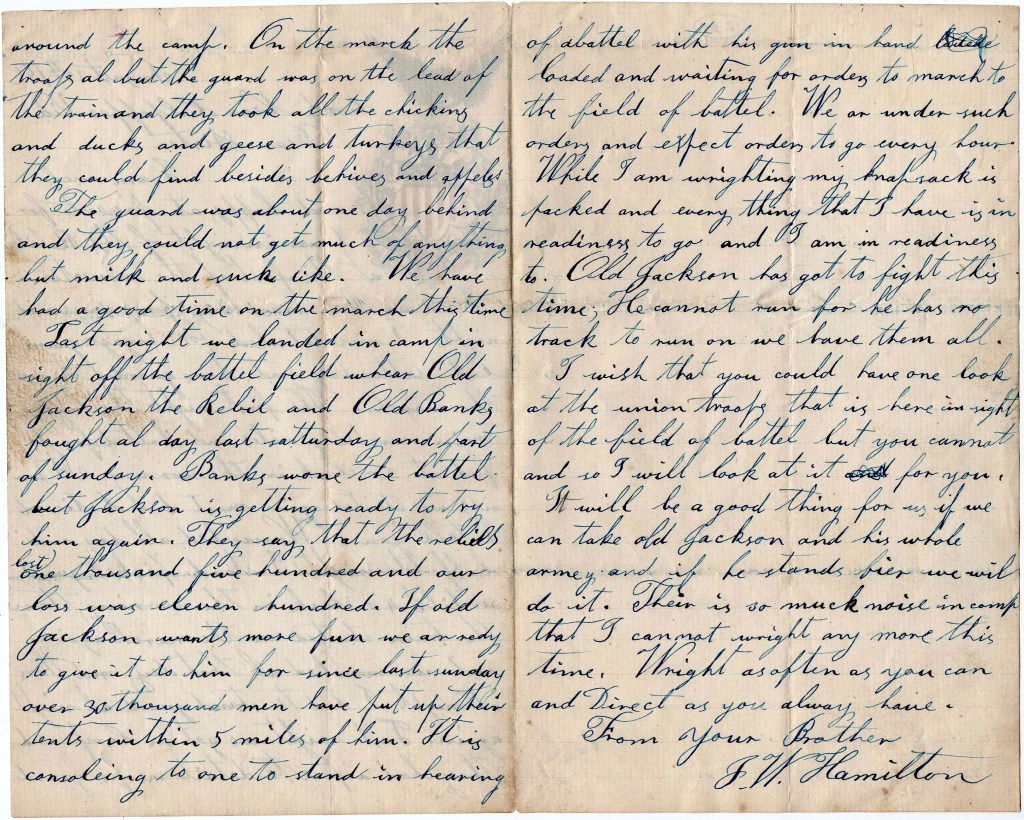 around the camp. On the march the
troops al but the guard was on the lead of
the train and they took all the chicking
and ducks and geese and turkeys that
they could find besides behives and appeles
The guard was about one day behind
and they could not get much of any thing
but milk and suck like. We have
had a good time on the march this time
Last night we landed in camp in
sight off the battel field whear Old
Jackson the Rebil and Old Banks
fought al day last satturday and part
of sunday. Banks wone the battel
but Jackson is getting ready to try
him again. They say that the rebels
lost
one thousand five hundred and our
loss was eleven hundred. If old
Jackson wants more fun we ar redy
to give it to him for since last sunday
over 30 thousand men have put up their
tents within 5 miles of him. It is
consoleing to one to stand in hearing
of abattel with his gun in hand
loaded and waiting for orders to march to
the field of battel. We ar under such
orders and expect orders to go every hour.
While I am wrighting my knapsack is
packed and every thing that I have is in
readinsss to go and I am in readiness
to. Old Jackson has got to fight this
time; He cannot run for he has no
track to run on we have them all.
I wish that you could have one look
at the union troops that is here in sight
of the field of battel but you cannot
and so I will look at it for you.
It will be a good thing for us if we
can take old Jackson and his whole
armey and if he stands fier we wil
do it. Their is so muck noise in camp
that I cannot wright any more this
time. Wright as often as you can
and Direct as you alway have.
From Your Brother
J. W. Hamilton